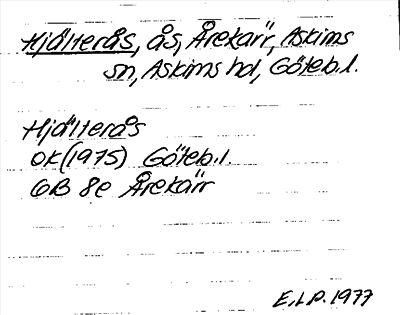 Hjälterås, ås, Årekärr, Askims
sn, Askims hd, Göteb.l.
Hjälterås
OK(1975) Göteb.l.
6B 8e Årekärr
E.L.P. 1977